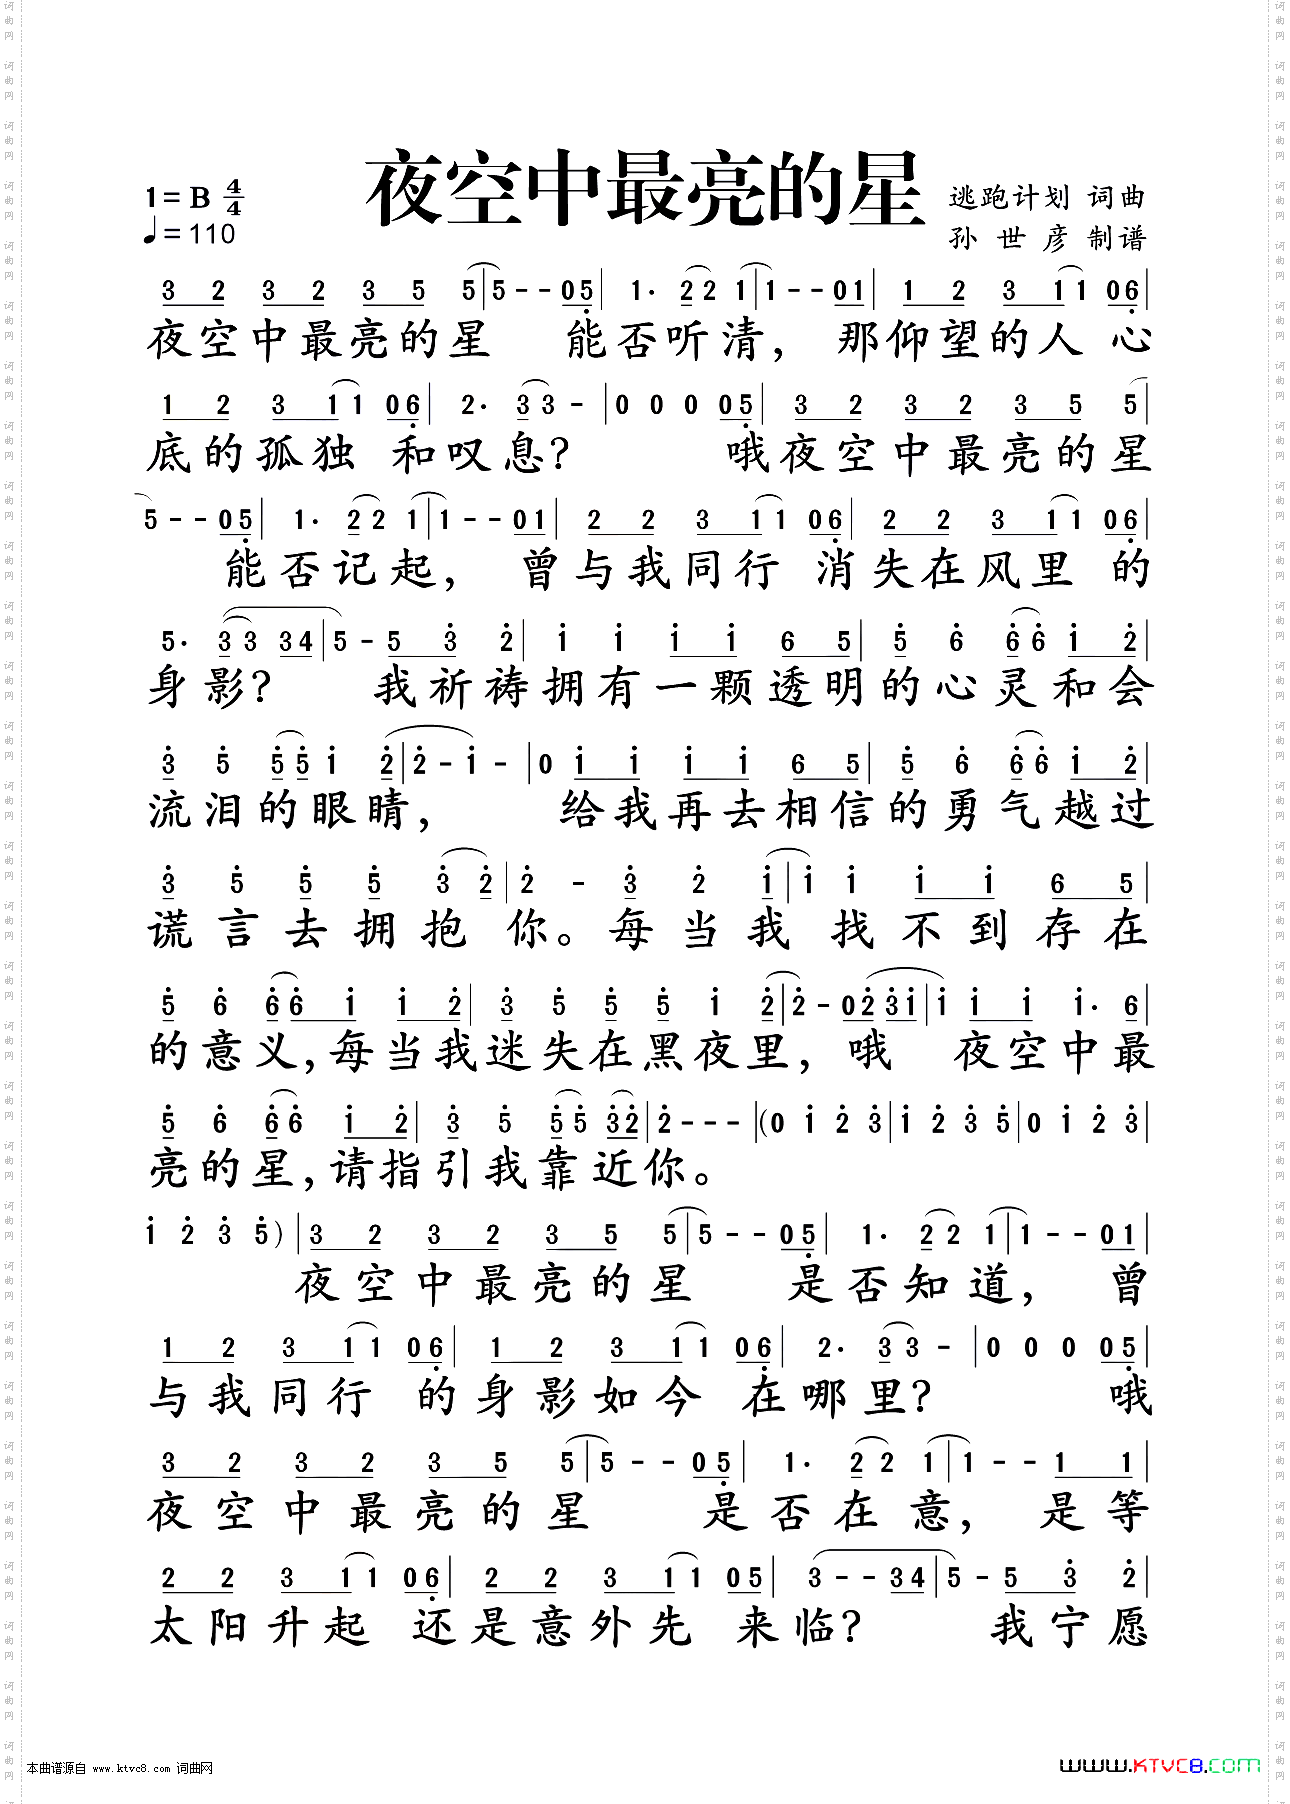 夜空中最亮的星
1=B 4/4
♩=110
逃跑计划 词曲
孙世彦 制谱
3 2 3 2 3 5 5|5--05|1·22 1|1--01|1 2 3 11 06|
夜空中最亮的星 能否听清，那仰望的人心
1 2 3 11 06|2·33-|0 0 0 05|3 2 3 2 3 5 5
底的孤独 和叹息？ 哦夜空中最亮的星
5--05|1·22 1|1--01|2 2 3 11 06|2 2 3 11 06|
能否记起，曾与我同行 消失在风里 的
5·33 34|5-5 3 2|1 1 1 1 6 5|5 6 66 1 2|
身影？ 我祈祷拥有一颗透明的心灵和会
3 5 55 1 2|2-1-|0 1 1 1 1 6 5|5 6 66 1 2|
流泪的眼睛，给我再去相信的勇气越过
3 5 5 5 3 2|2-3 2 1|1 1 1 1 6 5|
谎言去拥抱你。每当我找不到存在
5 6 66 1 1 2|3 5 5 5 1 2|2-0231|1 1 1 1·6|
的意义，每当我迷失在黑夜里，哦 夜空中最
5 6 66 1 2|3 5 55 32|2---|(0 1 2 3|1 2 3 5|0 1 2 3|
亮的星，请指引我靠近你。
1 2 3 5)|3 2 3 2 3 5 5|5--05|1·22 1|1--01|
夜空中最亮的星 是否知道，曾
1 2 3 11 06|1 2 3 11 06|2·33-|0 0 0 05|
与我同行 的身影如今 在哪里？ 哦
3 2 3 2 3 5 5|5--05|1·22 1|1--1 1|
夜空中最亮的星 是否在意，是等
2 2 3 11 06|2 2 3 11 05|3--34|5-5 3 2|
太阳升起 还是意外先 来临？ 我宁愿
本曲谱源自 www.ktvc8.com 词曲网
www.KTVC8.com